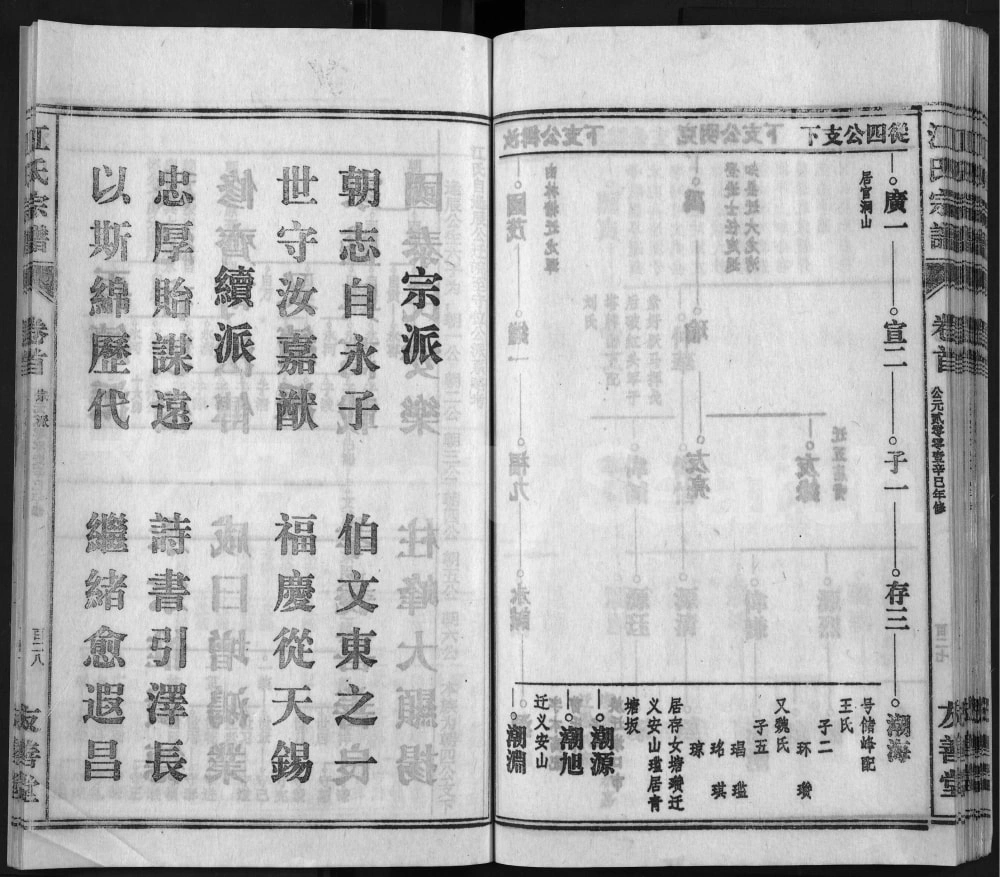 江氏宗譜
卷首
公元貳零零壹辛巳年修
友善堂
從四公支下
廣一
居官洞山
宣二
子一
存三
潮海
号储峰配
王氏
子二
环 瓒
又魏氏
子五
瑥 瑥
珆 琪
琼
居存女塘瓒迁
义安山瑾居青
塘坂
潮源
潮旭
潮淵
迁义安山
宗派
朝志自永子 伯文東之一
世守汝嘉猷 福慶從天錫
續派
忠厚貽謀遠 詩書引澤長
以斯綿歷代 繼緒愈遐昌
江氏宗譜
卷首
宗派
百二八
友善堂